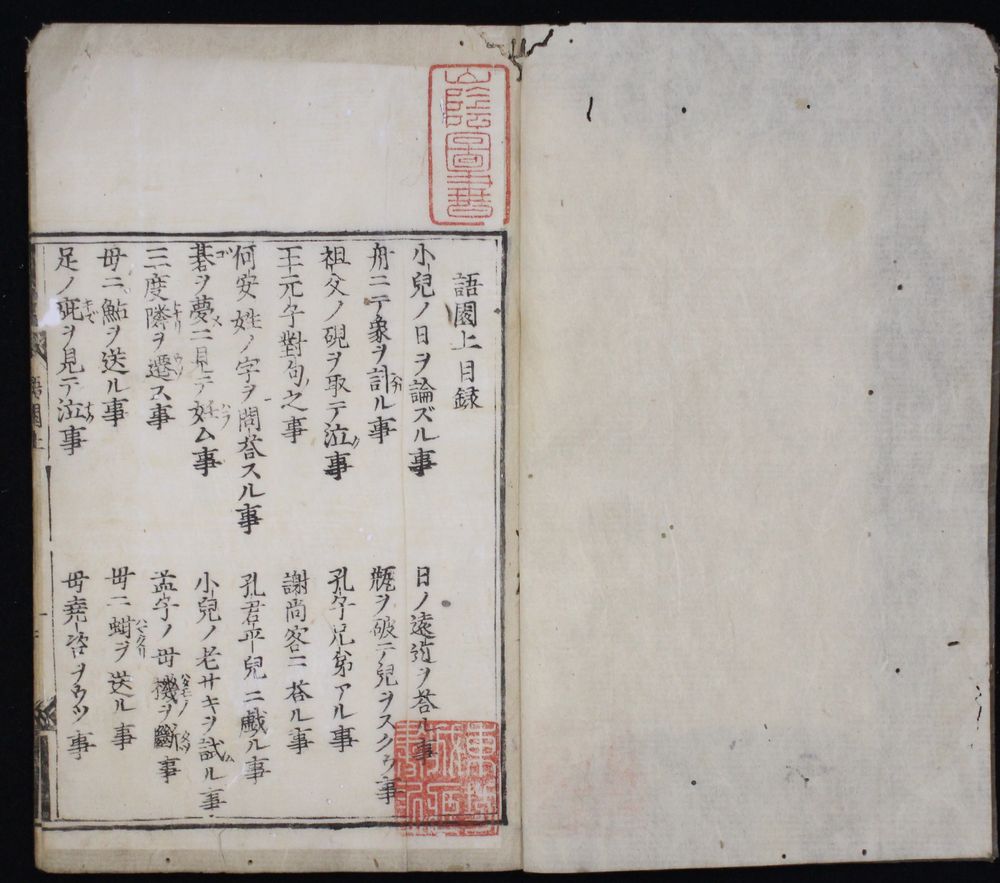 語園上目録
小兒ノ日ヲ論ズル事
日ノ遠近ヲ荅ル事
舟ニテ象ヲ計ル事
瓶ヲ破テ兒ヲスクフ事
祖父ノ硯ヲ取テ泣事
孔子兄弟アル事
王元子對句之事
謝尚客ニ荅ル事
何安姓ノ字ヲ問荅スル事
孔君平兒ニ戯ル事
碁ヲ夢ニ見テ好ム事
小兒ノ老サキヲ試ル事
三度隣ヲ遷ス事
孟子ノ母機ヲ斷事
母ニ鮎ヲ送ル事
母ニ蛸ヲ送ル事
足ノ疵ヲ見テ泣事
母尭咨ヲウツ事
山陰圖書